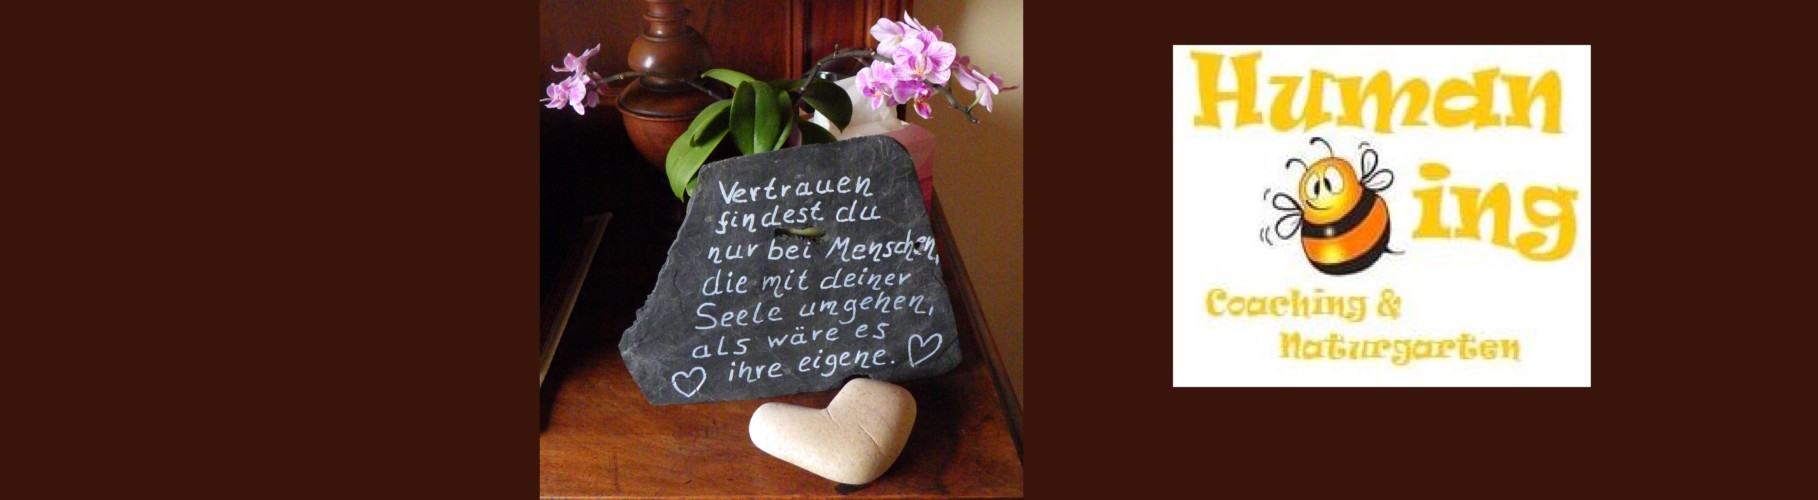 Vertrauen
findest du
nur bei Menschen,
die mit deiner
Seele umgehen,
als wäre es
ihre eigene.
Human
ing
Coaching &
Naturgarten